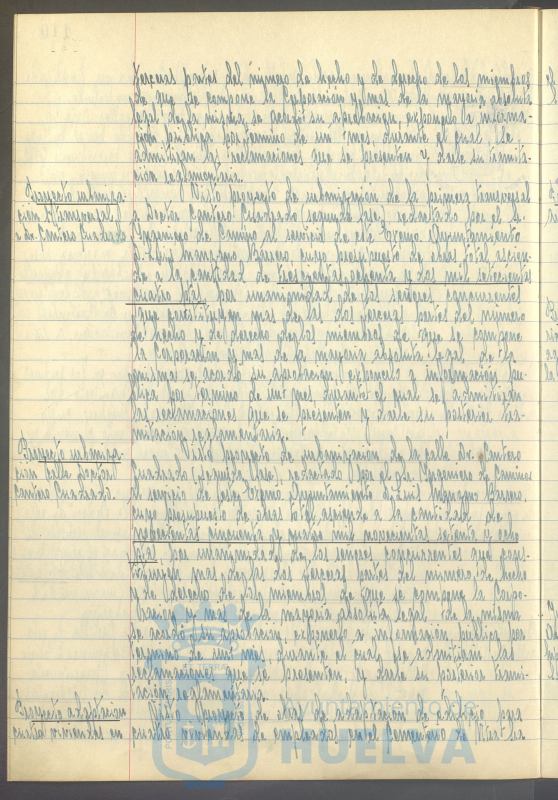 terceras partes del número de hecho y de derecho de los miembros
de que se compone la Corporacion y mas de la mayoria absoluta
legal de la misma, se acordó su aprobacion, exponerlo a informa-
cion pública por termino de un mes, durante el cual, se
admitiran las reclamaciones que se presenten y darle su tramita-
ción reglamentaria.
Proyecto urbaniza-
cion 1ª transversal
a Dr. Cantero Cuadrado
Visto proyecto de urbanización de la primera transversal
a Doctor Cantero Cuadrado (segunda fase) redactado por el Sr.
Ingeniero de Caminos al servicio de este Excmo. Ayuntamiento
D. Luis Manzano cuyo presupuesto de obras total ascien-
de a la cantidad de trescientas ochenta y dos mil setecientas
cuatro ptas por unanimidad de los señores concurrentes
que constituyen mas de las dos terceras partes del número
de hecho y de derecho de los miembros de que se compone
la Corporacion y mas de la mayoria absoluta legal de la
misma se acordó su aprobacion, exponerlo a informacion pú-
blica por termino de un mes, durante el cual se admitiran
las reclamaciones que se presenten y darle su posterior tra-
mitacion reglamentaria.
Proyecto urbaniza-
cion calle Doctor
Cantero Cuadrado.
Visto proyecto de urbanizacion de la calle Dr. Cantero
Cuadrado (segunda fase), redactado por el Sr. Ingeniero de Caminos
al servicio de este Excmo. Ayuntamiento D. Luis Manzano
cuyo presupuesto de obras total asciende a la cantidad de
setecientas cincuenta y cuatro mil novecientas setenta y ocho
ptas por unanimidad de los señores concurrentes que cons-
tituyen mas de las dos terceras partes del número de hecho
y de derecho de los miembros de que se compone la Corpo-
racion y mas de la mayoria absoluta legal de la misma
se acordó su aprobacion, exponerlo a informacion pública por
termino de un mes, durante el cual se admitiran las
reclamaciones que se presenten, y darle su posterior trami-
tacion reglamentaria.
Proyecto adaptacion
cuatro viviendas en
Visto proyecto de obras de adaptacion de edificio para
cuatro viviendas de empleados en el Cementerio de Ntra. Sra.
Ayuntamiento de
HUELVA